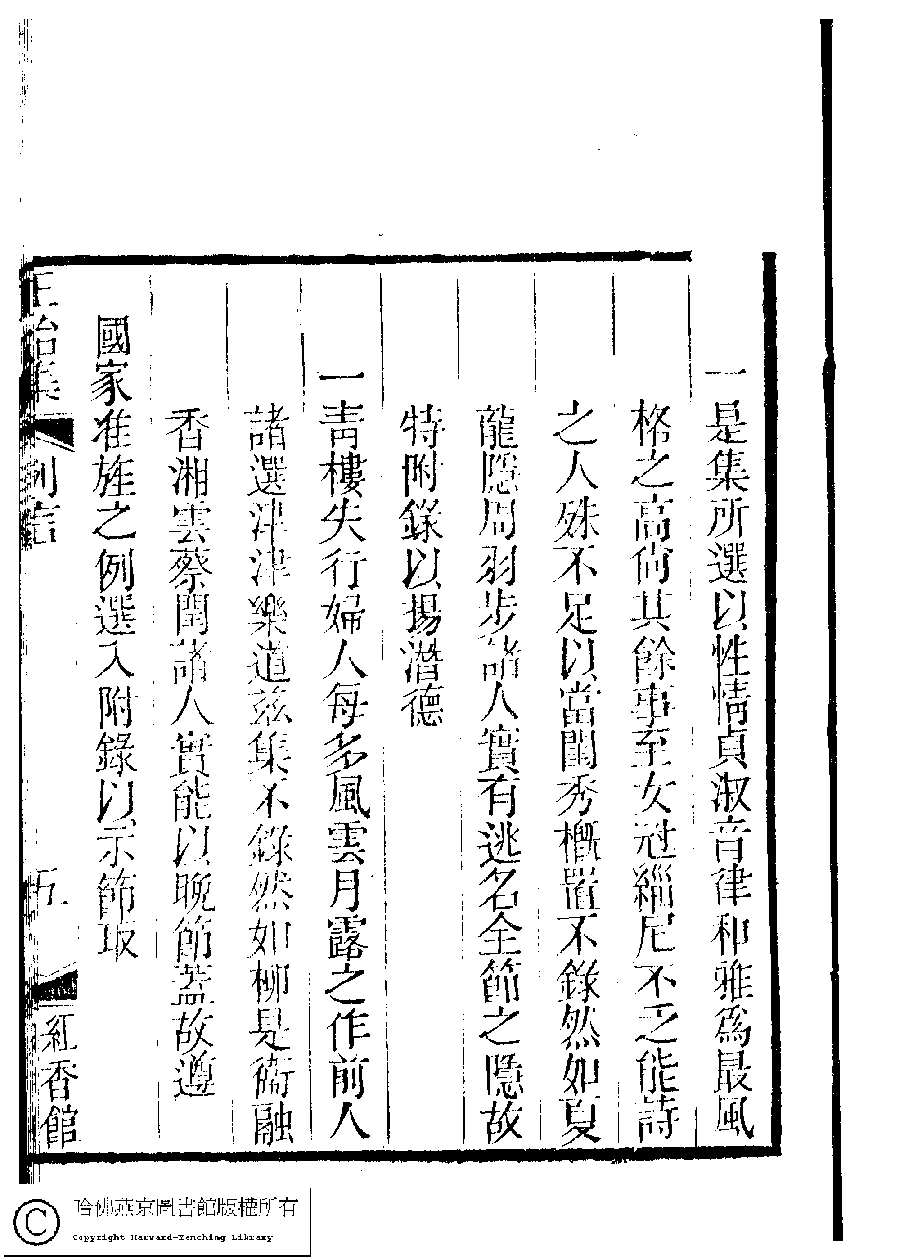 一是集所選以性情貞淑音律和雅爲最風
格之高尙其餘事至女冠緇尼不乏能詩
之人殊不足以當閨秀槪置不錄然如夏
龍隱周羽步諸人實有逃名全節之隱故
特附錄以揚潛德
一青樓失行婦人每多風雲月露之作前人
諸選津津樂道茲集不錄然如柳是衞融
香湘雲蔡閏諸人實能以晚節蓋故遵
國家准旌之例選入附錄以示節取
正始集 例言 五 紅香館
哈佛燕京圖書館版權所有
Copyright Harvard-Yenching Library